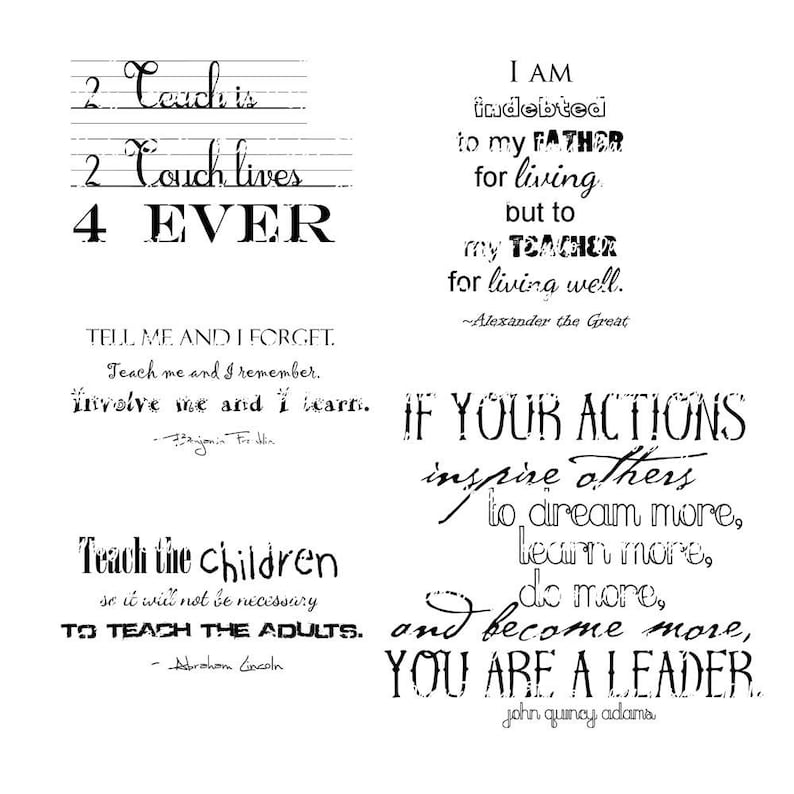 2 Teach is
2 Touch lives
4 EVER
I AM
indebted
to my FATHER
for living
but to
my TEACHER
for living well.
~Alexander the Great
TELL ME AND I FORGET.
Teach me and I remember.
Involve me and I learn.
~Benjamin Franklin
Teach the children
so it will not be necessary
TO TEACH THE ADULTS.
~ Abraham Lincoln
IF YOUR ACTIONS
inspire others
to dream more,
learn more,
do more,
and become more,
YOU ARE A LEADER.
john quincy adams